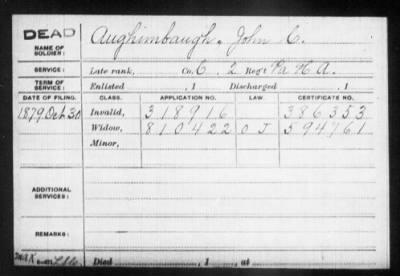 DEAD
NAME OF SOLDIER: Aughimbaugh, John C.
SERVICE: Late rank, Co. C. 2 Reg't Pa H A.
TERM OF SERVICE: Enlisted , 1 Discharged , 1
DATE OF FILING. CLASS. APPLICATION NO. LAW. CERTIFICATE NO.
1879 Oct 30 Invalid, 318916 386353
Widow, 810422 O J 594761
Minor,
ADDITIONAL SERVICES:
REMARKS:
Died , 1 , at